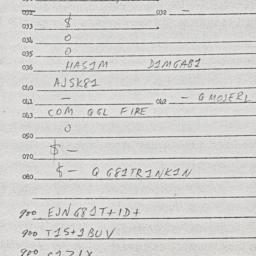 032 - 032 -
033 $
034 0
035 0
036 HASIM DIMGABI
040 AJSK81
041 - 042 - GMOJERL
043 COM GGL FIRE
050 0
070 $-
080 $- QG81TRINKIN
900 EJNG81T+ID+
900 TIS+1BUV
900